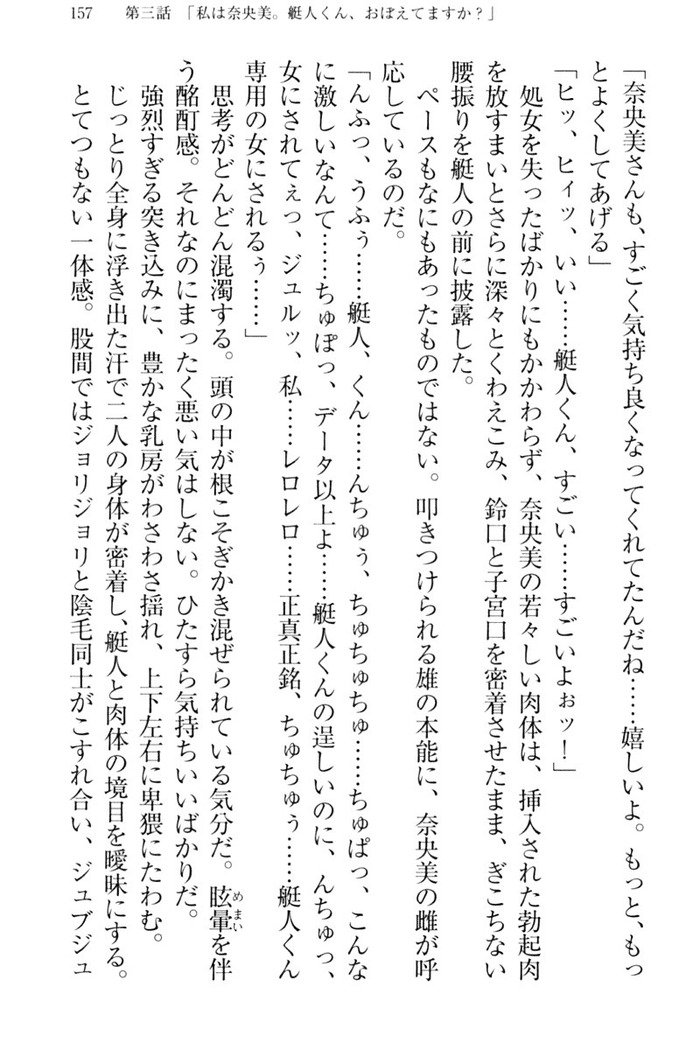 157　第三話 「私は奈央美。艇人くん、おぼえてますか？」
「奈央美さんも、すごく気持ち良くなってくれてたんだね……嬉しいよ。もっと、もっ
とよくしてあげる」
「ヒッ、ヒィッ、いい……艇人くん、すごい……すごいよぉッ！」
処女を失ったばかりにもかかわらず、奈央美の若々しい肉体は、挿入された勃起肉
を放すまいとさらに深々とくわえこみ、鈴口と子宮口を密着させたまま、ぎこちない
腰振りを艇人の前に披露した。
ペースもなにもあったものではない。叩きつけられる雄の本能に、奈央美の雌が呼
応しているのだ。
「んふっ、うふぅ……艇人、くん……んちゅぅ、ちゅちゅちゅ……ちゅぱっ、こんな
に激しいなんて……ちゅぽっ、データ以上よ……艇人くんの逞しいのに、んちゅっ、
女にされてぇっ、ジュルッ、私……レロレロ……正真正銘、ちゅちゅぅ……艇人くん
専用の女にされるぅ……」
思考がどんどん混濁する。頭の中が根こそぎかき混ぜられている気分だ。眩暈（めまい）を伴
う酩酊感。それなのにまったく悪い気はしない。ひたすら気持ちいいばかりだ。
強烈すぎる突き込みに、豊かな乳房がわさわさ揺れ、上下左右に卑猥にたわむ。
じっとり全身に浮き出た汗で二人の身体が密着し、艇人と肉体の境目を曖昧にする。
とてつもない一体感。股間ではジョリジョリと陰毛同士がこすれ合い、ジュブジュ